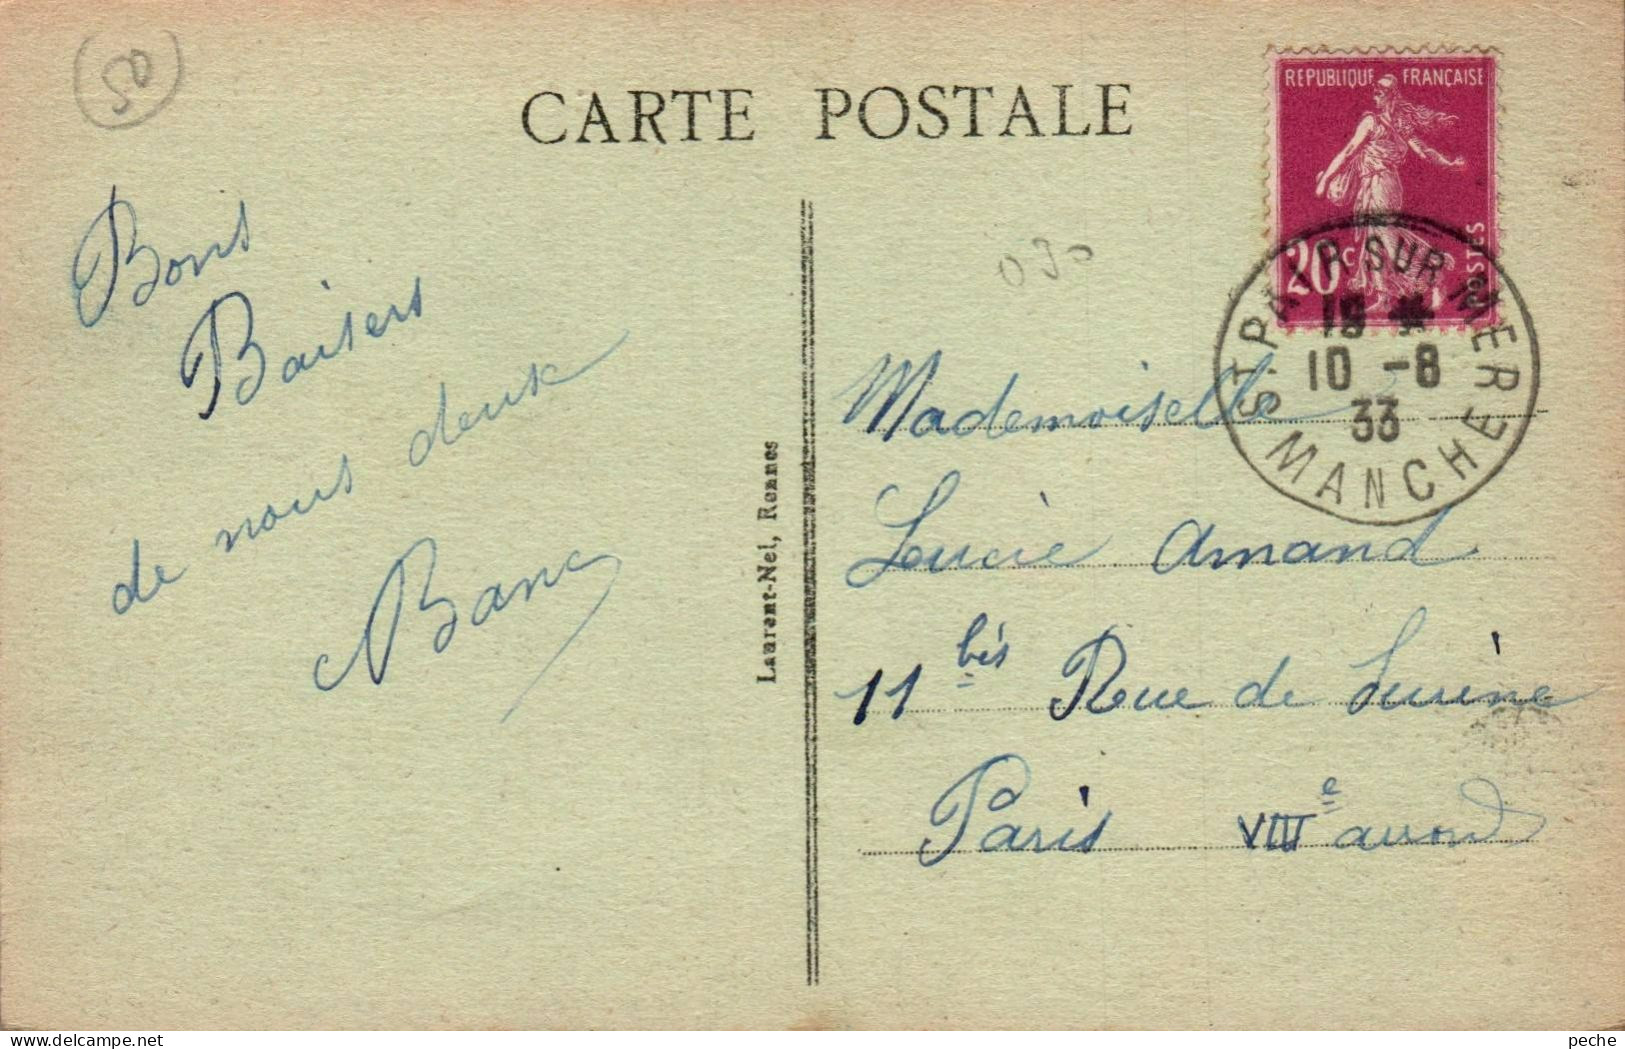 50
CARTE POSTALE
REPUBLIQUE FRANÇAISE
20c
POSTES
ST PAIR SUR MER
19 *
10 -8
33
MANCHE
030
Bons
Baisers
de nous deux
Laurent-Nel, Rennes
Mademoiselle
Lucie Amand
11 bis Rue de
Paris VIIIe arrond
peche